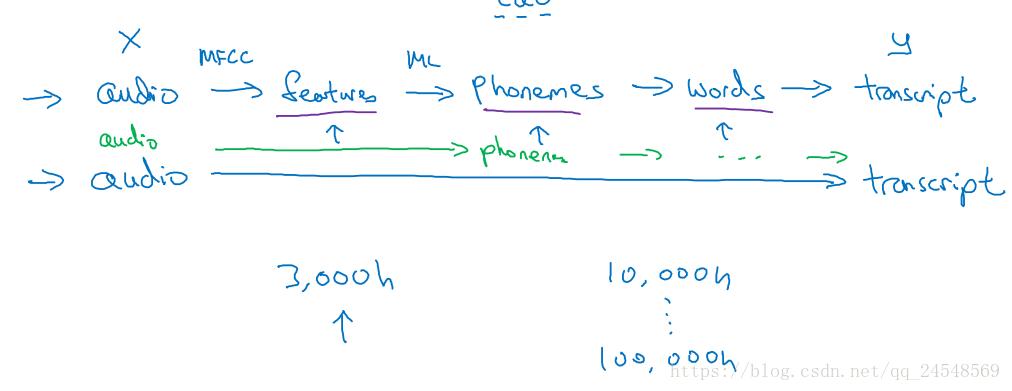 X y
MFCC ML
→ audio → features → phonemes → words → transcript
↑ ↑ ↑
audio → phonemes → ... →
→ audio → transcript
3,000h 10,000h
↑ ⋮
100,000h
https://blog.csdn.net/qq_24548569